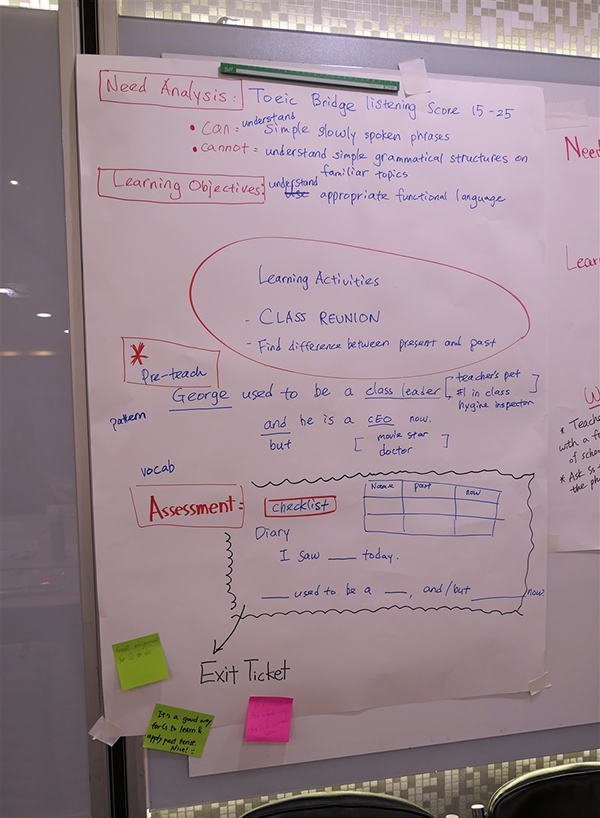 Need Analysis: Toeic Bridge listening Score 15-25
• can = understand simple slowly spoken phrases
• cannot = understand simple grammatical structures on
familiar topics
Learning Objectives: understand use appropriate functional language
Learning Activities
- CLASS REUNION
- Find difference between present and past
* Pre-teach
George used to be a class leader [teacher's pet
#1 in class
hygine inspector]
pattern
and he is a CEO now.
but [movie star
doctor]
vocab
Assessment: checklist
Name past now
Diary
I saw ___ today.
___ used to be a ___, and/but ___ now.
Exit Ticket
It's a good way
for Ss to learn &
apply past tense.
Nice! :)
Need
Lear
W
* Teache
with a f
of scho
* Ask Ss t
the ph